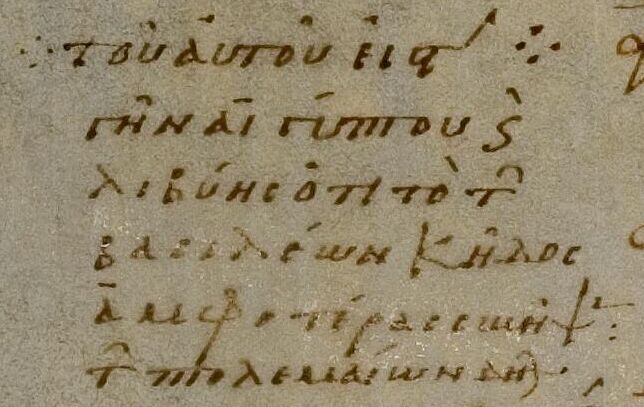 τοῦ αὐτοῦ εἰς τ
γῆν αἰγύπτου ϗ
λιβύης ὅτι τὸ τῶ
βασιλέων κῆδος
ἀμφοτέρας συνῆψ
τῶ πτολεμαίων